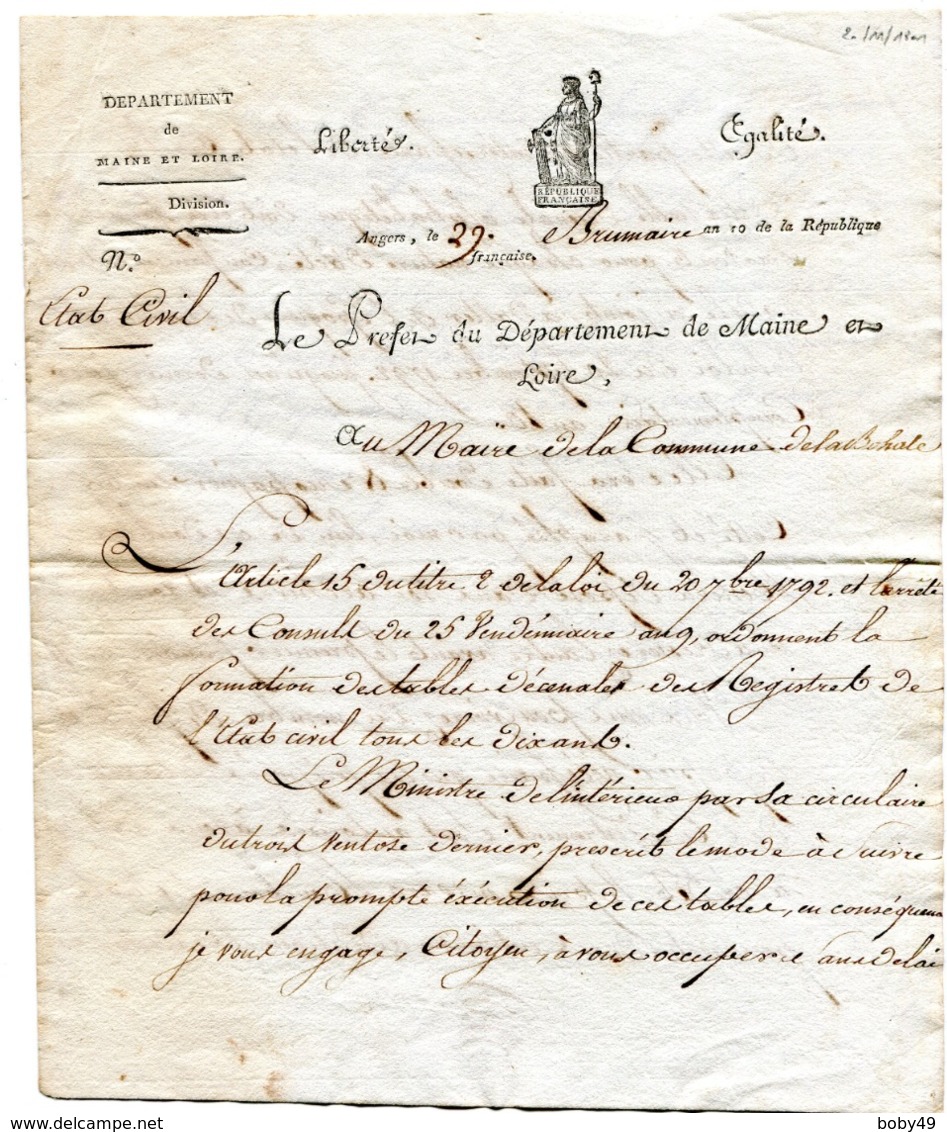 20/11/1801
DEPARTEMENT
de
MAINE ET LOIRE.
Division.
N.o
Etat Civil
Liberté.
RÉPUBLIQUE
FRANÇAISE.
Egalité.
Angers, le 29. Brumaire an 10 de la République
française.
Le Prefet du Département de Maine et
Loire,
Au Maire de la Commune de la Bohale
L'Article 15 du titre 2 de la loi du 20 7bre 1792. et l'arrêté
des Consuls du 25 Vendémiaire an 9, ordonnent la
formation des tables décenales des Registres de
l'Etat civil tous les dix ans.
Le Ministre de l'intérieur par sa circulaire
du trois Ventose dernier, prescrit le mode à suivre
pour la prompte éxécution de ces tables, en conséquence
je vous engage, Citoyen, à vous occuper sans delai
boby49